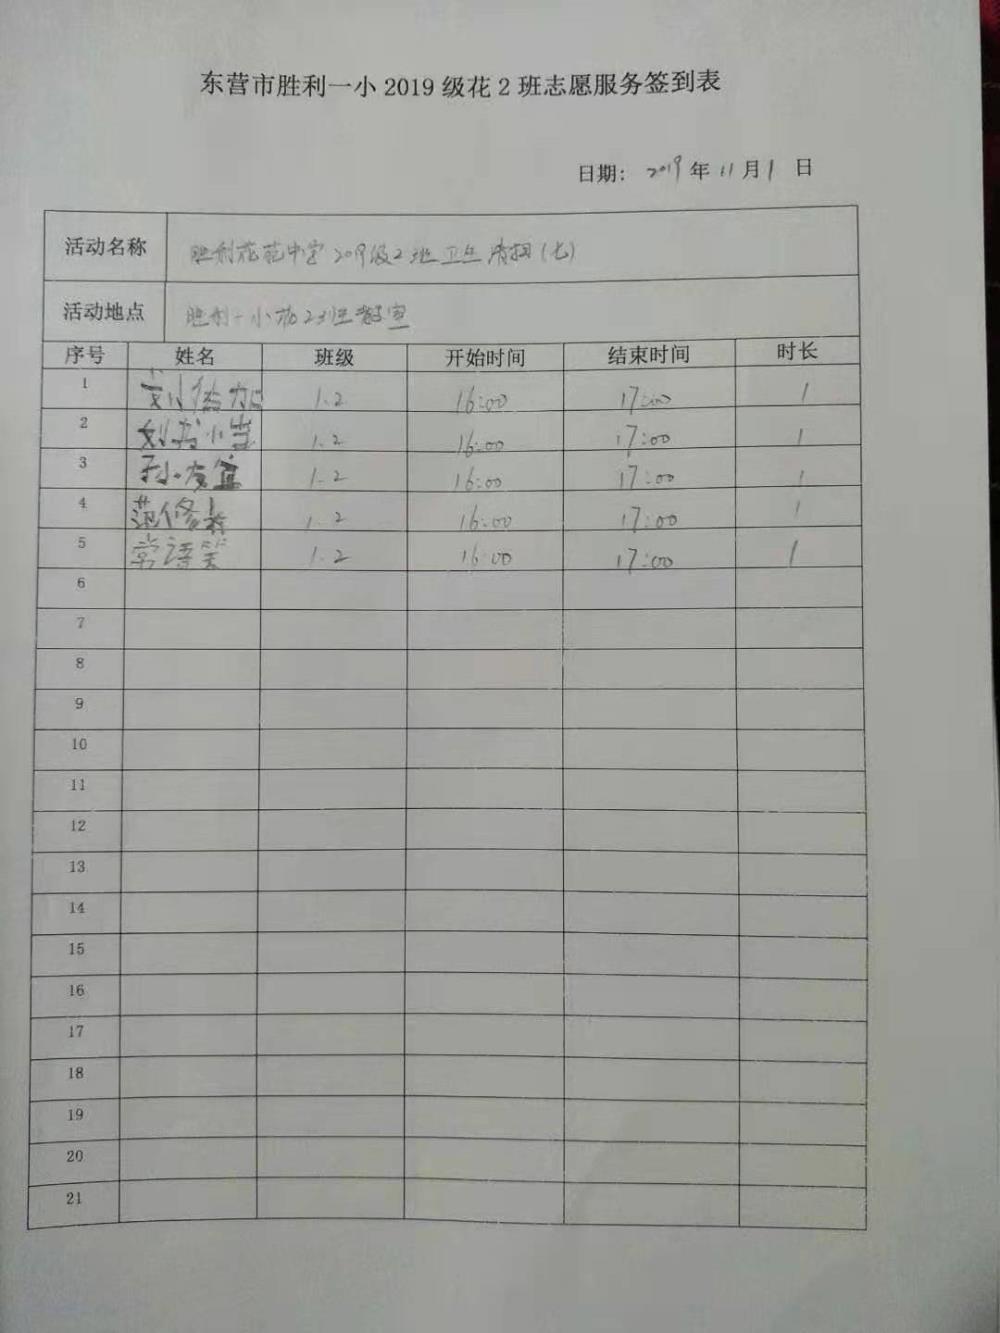 东营市胜利一小2019级花2班志愿服务签到表
日期: 2019年11月1日
活动名称 胜利花苑中学2019级2班卫生清扫(七)
活动地点 胜利一小花2班教室
序号 姓名 班级 开始时间 结束时间 时长
1 1.2 16:00 17:00 1
2 刘 1.2 16:00 17:00 1
3 孙 1.2 16:00 17:00 1
4 范修 1.2 16:00 17:00 1
5 常语笑 1.2 16:00 17:00 1
6
7
8
9
10
11
12
13
14
15
16
17
18
19
20
21